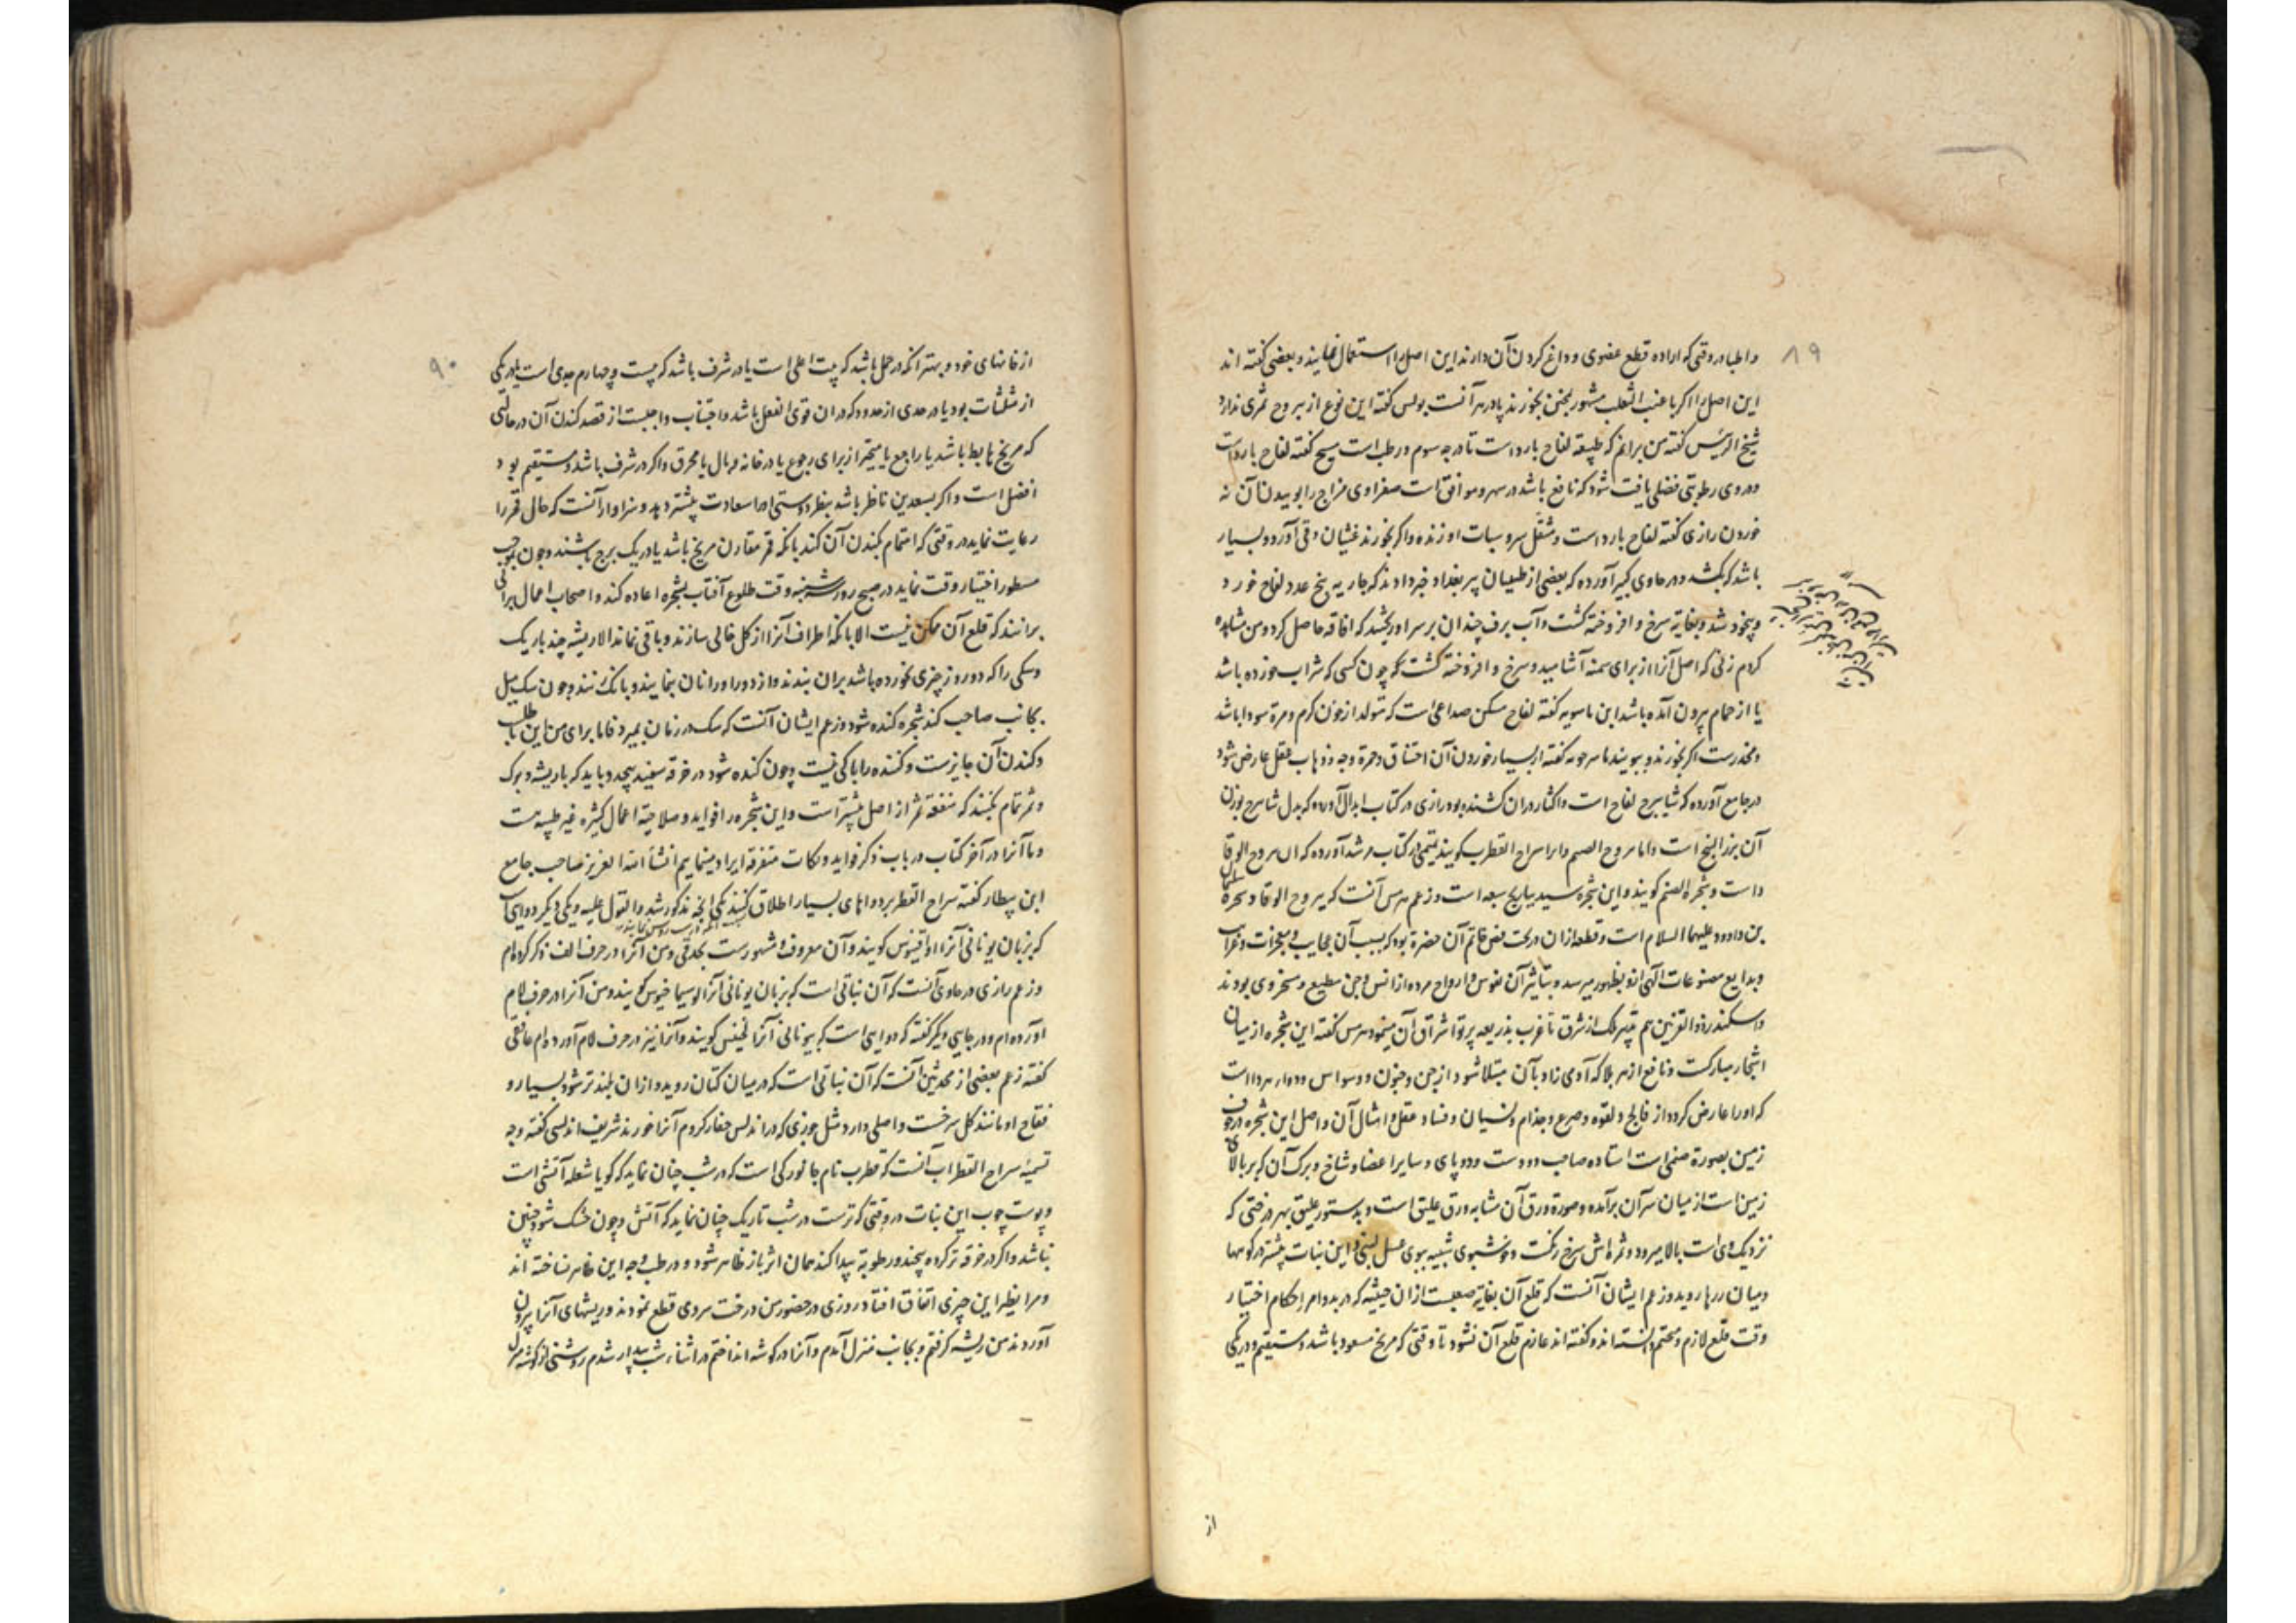 ۸۹
واطبا در وقتی که اراده قطع عضوی و داغ کردن آن دارند این اصل را استعمال نمایند و بعضی گفته اند
این اصل را اکر با عنب الثعلب مشهور بجنن بخورند پادزهر آنست بولس گفته این نوع از یبروح ثمری ندارد
شیخ الرئیس گفته من برانم که طبیعة لفاح بارد است تا درجه سوم و رطب است مسیح گفته لفاح بارد است
و در وی رطوبتی فضلی یافت شود که نافع باشد در سهر و موافق است صفراوی مزاج را بوییدن آن نه
خوردن رازی گفته لفاح بارد است و مثقل سر و سبات اوزنده و اکر بخورند غثیان و قی آورد و بسیار
باشد که بکشد و در حاوی کبیر آورده که بعضی از طبیبان پیر بغداد خبر دادند که جاریه پنج عدد لفاح خورد
و بیخود شد و بغایة سرخ و افروخته کشت و آب برف چندان بر سر او ریختند که افاقه حاصل کرد و من مشاهده
کردم زنی که اصل آنرا از برای سمنه آشامید و سرخ و افروخته کشت که چون کسی که شراب خورده باشد
یا از حمام بیرون آمده باشد ابن ماسویه گفته لفاح مسکن صداعی است که متولد از خون کرم و مرة سودا باشد
و مخدرست اکر بخورند و ببویند ماسرجویه گفته از بسیار خوردن آن اختناق و حمرة وجه و ذهاب عقل عارض شود
در جامع آورده که شابیرج لفاح است و اکثار در ان کشنده بود و رازی در کتاب ابدال آورده که بدل شابیرج بوزن
آن بزر البنج است و اما یبروح الصنم و انرا سراج القطرب کویند تمیمی در کتاب مرشد آورده که ان یبروح الوقا
داست و شجرة الصنم کویند و این شجره سید یباریح سبعه است و زعم هرمس آنست که یبروح الوقاد شجره سلیمان
بن داوود علیهما السلام است و قطعه ازان در تحت فص خاتم آن حضرة بود که بسبب آن عجایب و معجزات و غرایب
و بدایع مصنوعات الهی ازو بظهور میرسد و بتاثیر آن نفوس و ارواح مرده از انس و جن مطیع و مسخر وی بودند
و اسکندر ذوالقرنین هم تسخیر ملک از شرق تا غرب بذریعه پرتو اشراق آن مینمود هرمس گفته این شجره از میان
اشجار مبارکست و نافع از هر بلا که آدمی زاد بآن مبتلا شود از جن و جنون و وسواس و دوار هر داا است
که اورا عارض کردد از فالج و لقوه و صرع و جذام و نسیان و فساد عقل و امثال آن و اصل این شجره در جوف
زمین بصورة صنمی است استاده صاحب دو دست و دو پای و سایر اعضا و شاخ و برک آن که بر بالای
زمین است از میان سر آن برآمده و صورة ورق آن مشابه ورق علیق است و بدستور علیق بهر درختی که
نزدیک وی است بالا میرود و ثمره اش سرخ رنکست و خوشبوی شبیه ببوی عسل لبنی و این نبات بیشتر در کوهها
و میان رزها روید و زعم ایشان آنست که قلع آن بغایة صعبست ازان حیثیه که در بدو امر احکام اختیار
وقت قلع لازم و محتم دانسته اند و گفته اند عازم قلع آن نشود تا وقتی که مریخ مسعود باشد و مستقیم و در یکی
از
۹۰
از خانهای خود و بهتر انکه در حمل باشد که بیت اعلی است یا در شرف باشد که بیست و چهارم جدی است یا در یکی
از مثلثات بود یا در حدی از حدود که در ان قوی الفعل باشد و اجتناب واجبست از قصد کندن آن در حالتی
که مریخ هابط باشد یا راجع یا متحیر از برای رجوع یا در خانه وبال یا محرق و اکر در شرف باشد و مستقیم بود
افضل است و اکر بسعدین ناظر باشد بنظر دوستی اورا سعادت بیشتر دهد و سزاوار آنست که حال قمر را
رعایت نماید در وقتی که اهتمام بکندن آن کند بانکه قمر مقارن مریخ باشد یا در یک برج باشند و چون بموجب
مسطور اختیار وقت نماید در صبح روز سه شنبه وقت طلوع آفتاب بشجره اعاده کند و اصحاب اعمال برآنی
برانند که قلع آن ممکن نیست الا بانکه اطراف آنرا از کل خالی سازند و باقی نماند الا ریشه چند باریک
و سکی را که دو روز چیزی نخورده باشد بران بندند و از دور اورا نان بنمایند و بانک زنند و چون سک میل
بجانب صاحب کند شجره کنده شود و زعم ایشان آنست که سک در زمان بمیرد فاما برای من این باب طلب
و کندن آن جایزست و کننده را باکی نیست و چون کنده شود در خرقه سفید پیچد و باید که با ریشه و برک
و ثمر تمام بکنند که منفعة ثمر از اصل بیشتر است و این شجره را فواید و صلاحیة اعمال کثیره غیر طبیه هست
و ما آنرا در آخر کتاب در باب ذکر فواید و نکات متفرقه ایراد مینماییم انشاء الله العزیز صاحب جامع
ابن بیطار گفته سراج القطرب بر دواهای بسیار اطلاق کنند یکی انچه مذکور شد و القول علیه و یکی دیکر دوای است
که بزبان یونانی آنرا اوقینوس کویند و آن معروف و مشهورست بحدقی و من آنرا در حرف الف ذکر کرده ام
و زعم رازی در حاوی آنست که آن نباتی است که بزبان یونانی آنرا لوسیماخیوس کویند و من آنرا در حرف لام
آورده ام و در جایی دیکر گفته که دوایی است که بیونانی آنرا لخنیس کویند و آنرا نیز در حرف لام آورده ام غافقی
گفته زعم بعضی از محدثین آنست که آن نباتی است که در میان کتان روید و ازان بلندتر شود بسیار و
فقاح او مانند کل سرخست و اصلی دارد مثل جوزی که در اندلس حفار کروم آنرا خورند شریف اندلسی گفته وجه
تسمیۀ سراج القطرب آنست که قطرب نام جانورکی است که در شب چنان نماید که کویا شعله آتشی است
و پوست چوب این نبات در وقتی که ترست در شب تاریک چنان نماید که آتش و چون خشک شود چنین
نباشد و اکر در خرقه تر کرده پیچند و رطوبة پیدا کند همان اثر باز ظاهر شود و در طب وجه این ظاهر نساخته اند
و مرا نظیر این چیزی اتفاق افتاد روزی در حضور من درخت سروی قطع نمودند و ریشهای آنرا بیرون
آوردند من ریشه کرفتم و بجانب منزل آمدم و آنرا در کوشه انداختم در اثناء شب بیدار شدم روشنی از کوشه منزل